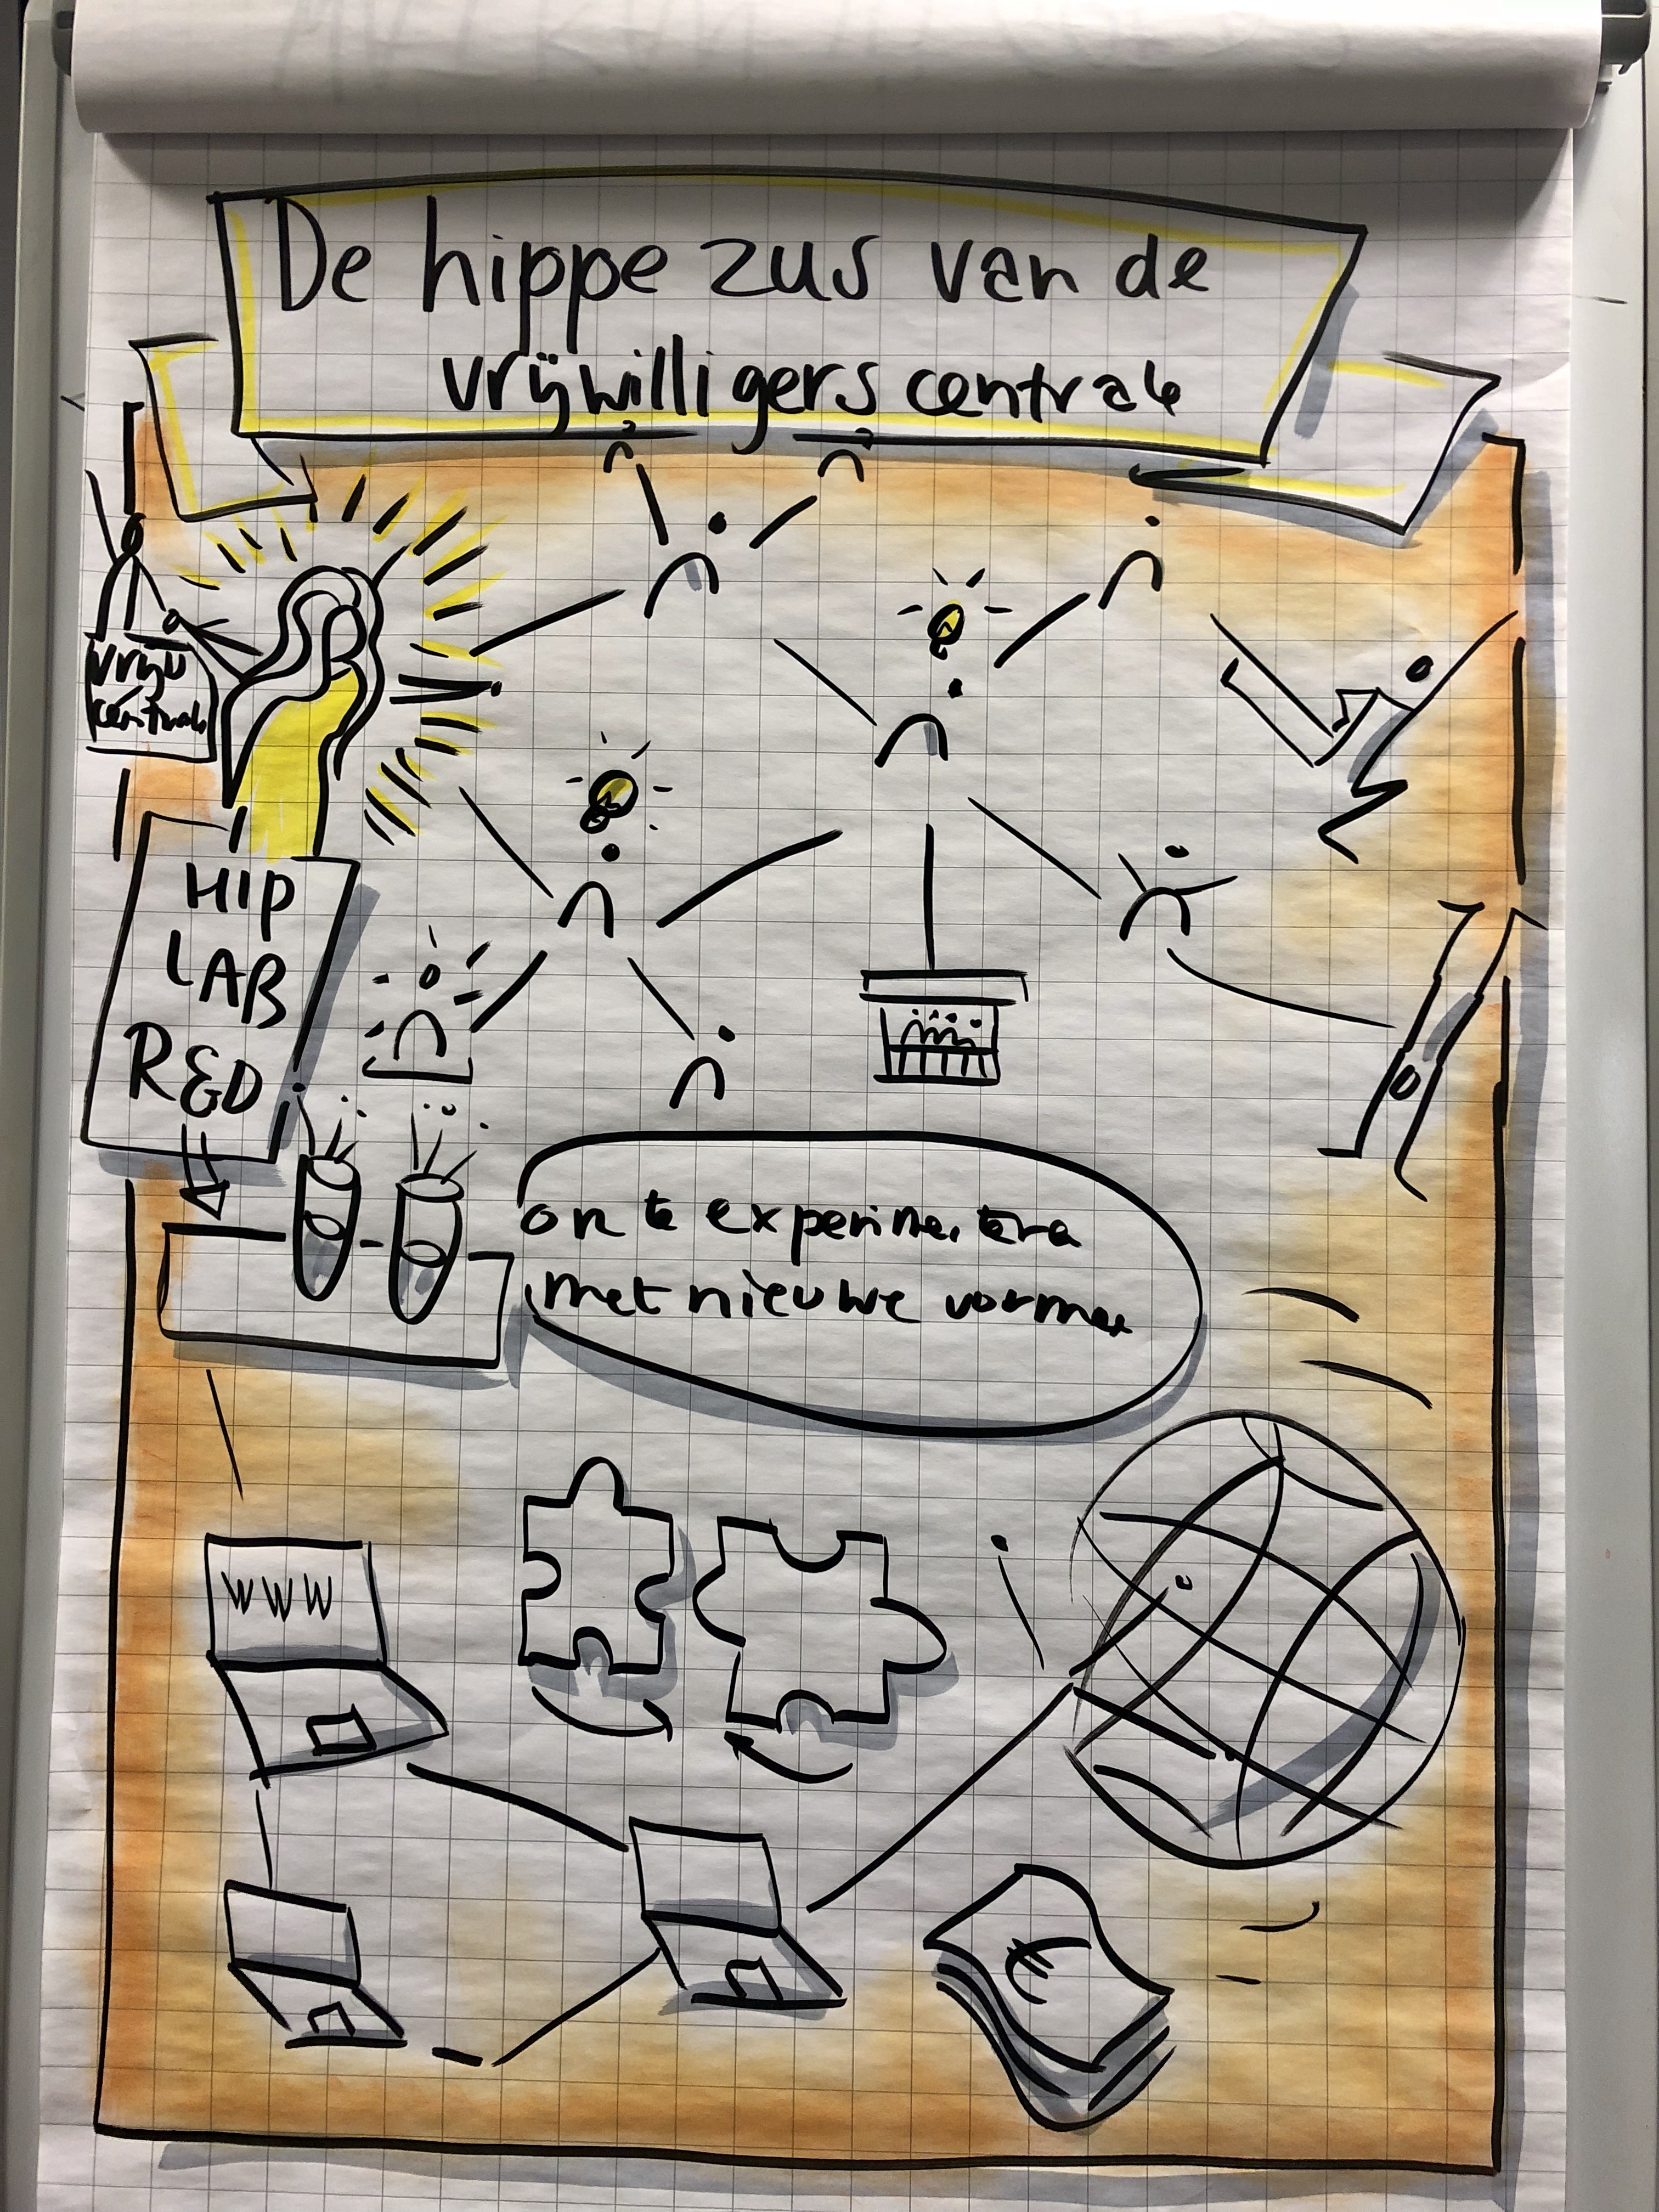 De hippe zus van de
vrijwilligers centrale
vrijw
centrale
HIP
LAB
R&D
om te experimenteren
met nieuwe vormen
WWW
€